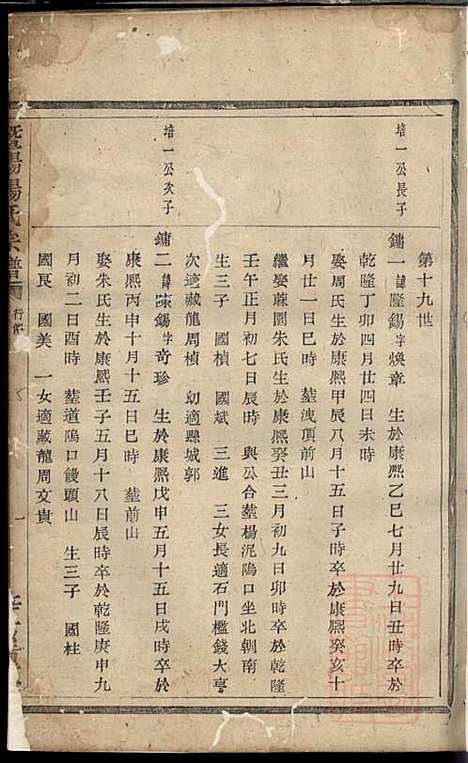 第十九世
培一公長子
鏞一 諱隆錫字煥章 生於康熙乙巳七月廿九日丑時卒於
乾隆丁卯四月廿四日未時
娶周氏生於康熙甲辰八月十五日子時卒於康熙癸亥十
月廿一日巳時 塟洩頂前山
繼娶蔴園朱氏生於康熙癸丑三月初九日卯時卒於乾隆
壬午正月初七日辰時 與公合塟楊泥塢口坐北朝南
生三子 國楨 國斌 三進 三女長適石門檻錢大亨
次適藏龍周楨 幼適縣城郭
培一公次子
鏞二 諱 錫字奇珍 生於康熙戊申五月十五日戌時卒於
康熙丙申十月十五日巳時 塟前山
娶朱氏生於康熙壬子五月十八日辰時卒於乾隆庚申九
月初二日酉時 塟道塢口饅頭山 生三子 國柱
國良 國美 一女適藏龍周文貴
暨陽楊氏宗譜
行
一